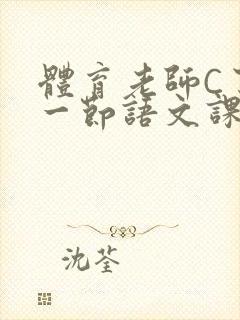 體育老師C
一節語文課
沈荃